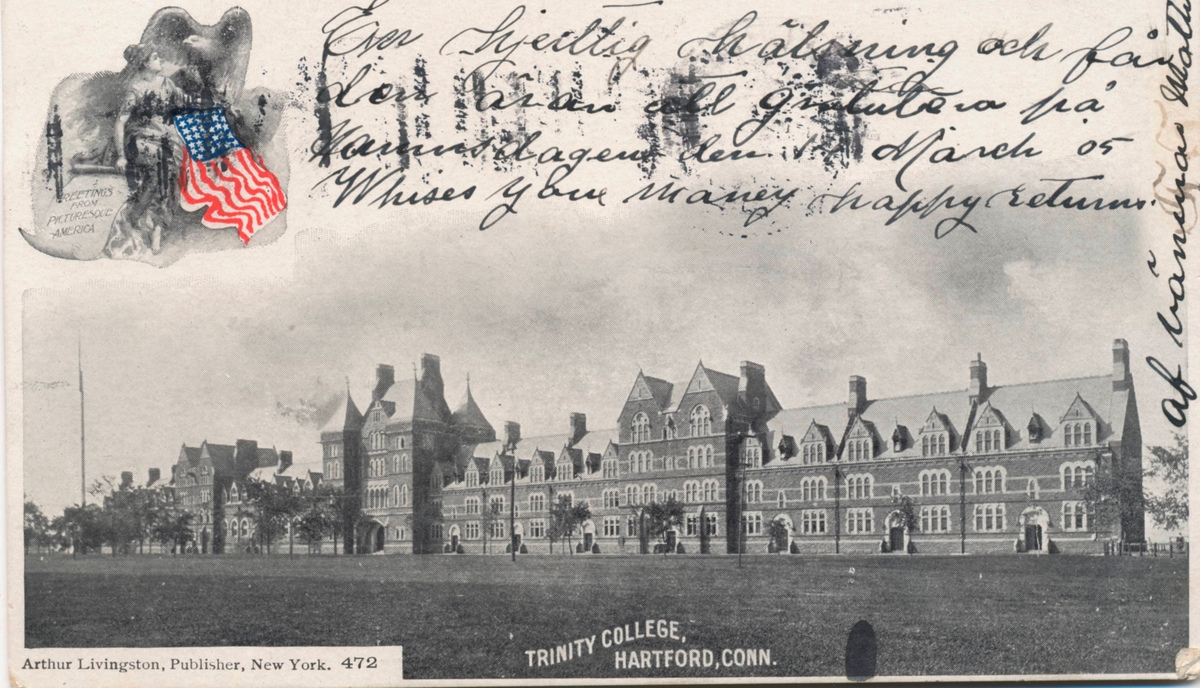 GREETINGS
FROM
PICTURESQUE
AMERICA
En hjertlig hälsning och får
den äran att gratulera på
Namnsdagen den March 05
Whises you maney happy returns.
af vännas
TRINITY COLLEGE,
HARTFORD, CONN.
Arthur Livingston, Publisher, New York. 472